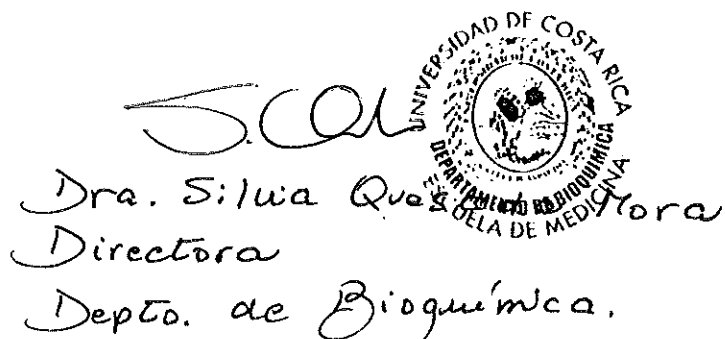 UNIVERSIDAD DE COSTA RICA
DEPARTAMENTO DE BIOQUIMICA
ESCUELA DE MEDICINA
Dra. Silvia Quesada Mora
Directora
Depto. de Bioquímica.